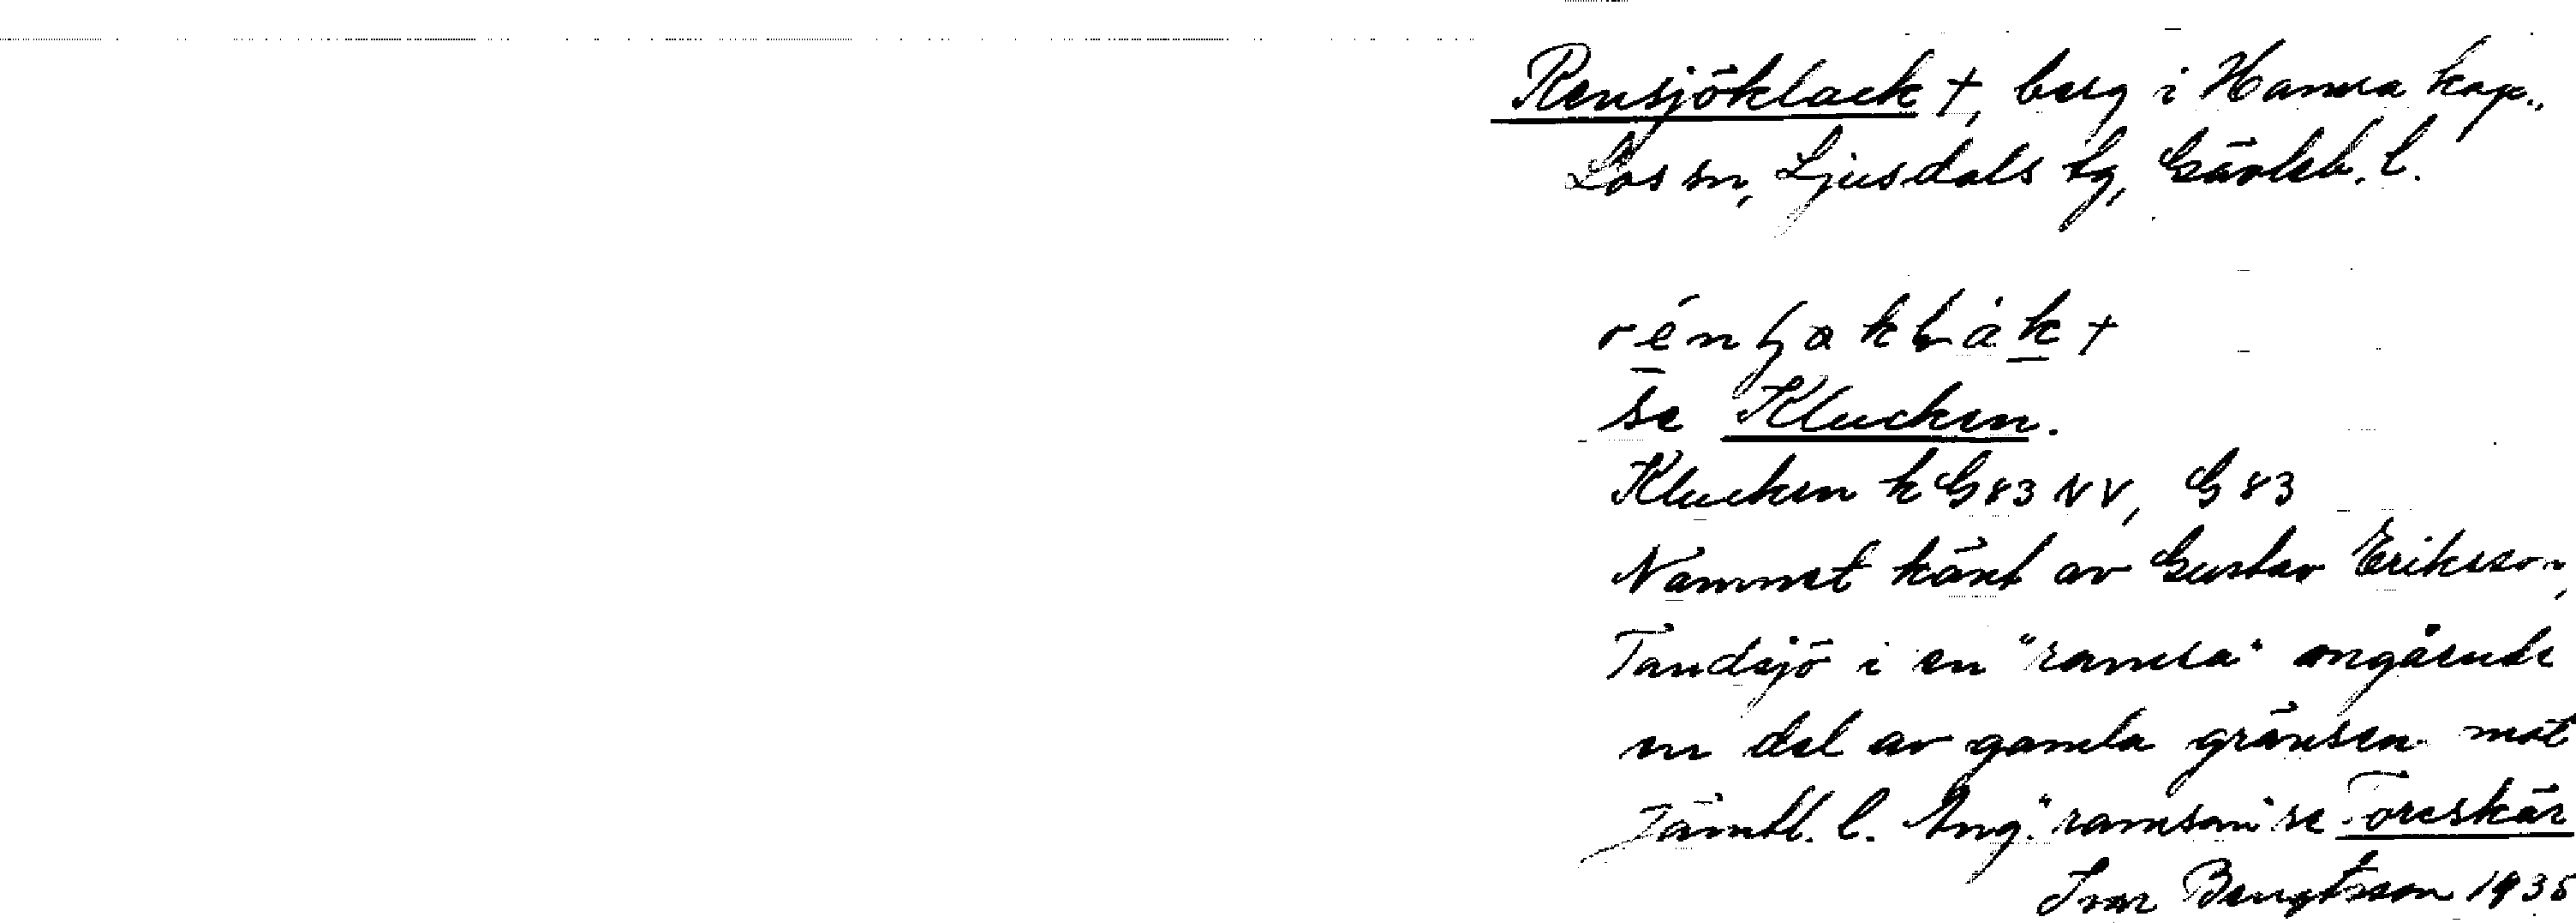 Rensjöklack +, berg i Hamra kap.,
Los sn, Ljusdals tg, Gävleb. l.
se Klucken.
Klucken k G 83 NV, G 83
Namnet känt av Gustav Eriksson,
Tandsjö i en "ramsa" angående
en del av gamla gränsen mot
Jämtl. l. Ang. "ramsan" se Foreskär
Ivar Bengtsson 1935